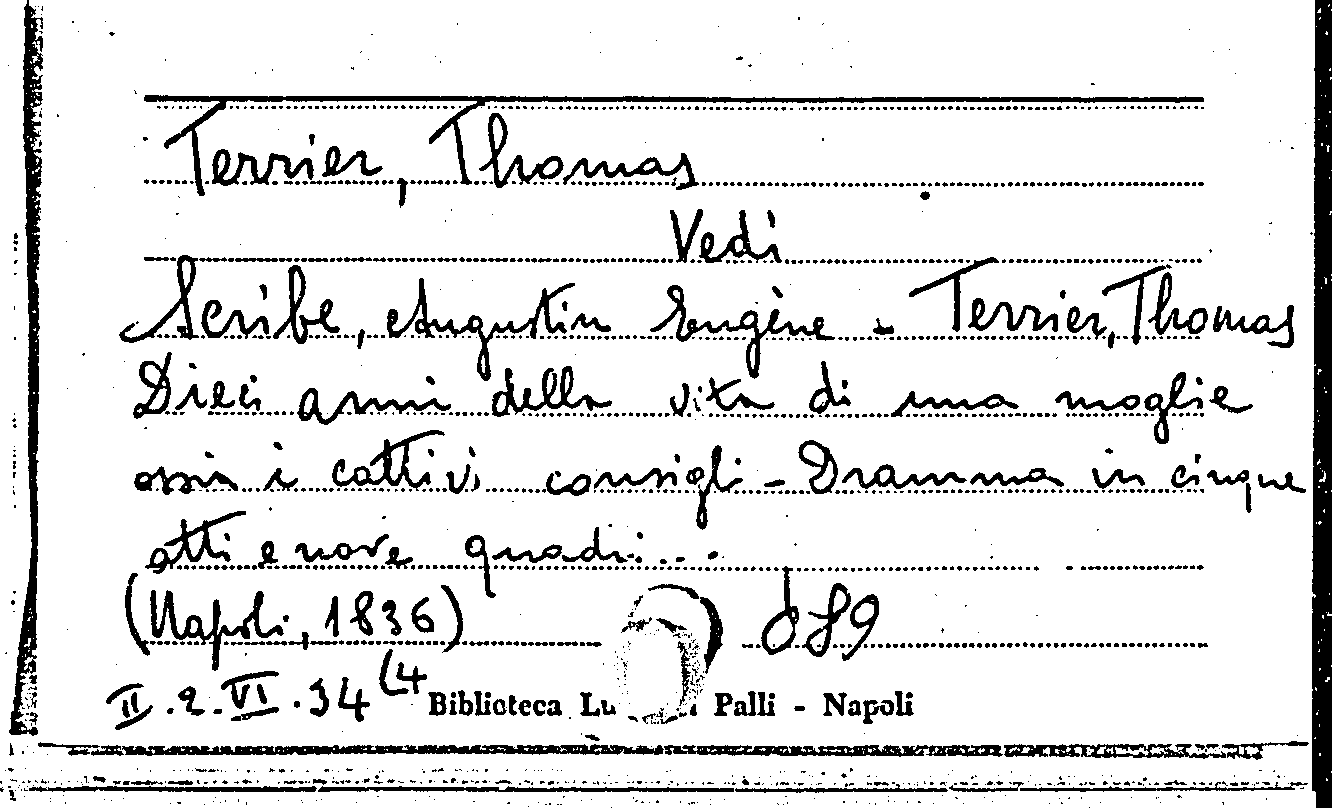 Terrier, Thomas
Vedi
Scribe, Augustin Eugène - Terrier, Thomas
Dieci anni della vita di una moglie
ossia i cattivi consigli - Dramma in cinque
atti e nove quadri...
(Napoli, 1836) 689
II.2.VI.34(4
Biblioteca Lu Palli - Napoli